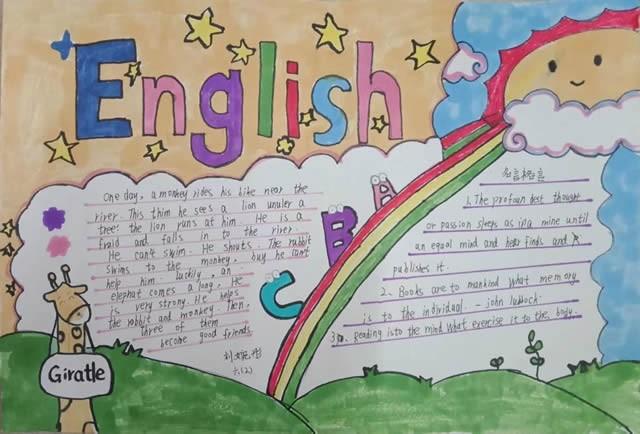 English
One day, a monkey rides his bike near the
river. This thim he sees a lion unuler a
tree. the lion runs at him. He is a
fraid and falls in to the river.
He can't swim. He shouts. The rabbit
swims to the monkey, buy he can't
help him. luckily, an
elephat comes a long, He
is very strong. He helps
the rabbit and monkey. Then,
three of them
become good friends
六.(2)
A
B
C
Giratle
名言机言
1. The profoun dest thought
or passion sleeps as in a mine until
an eqaal mind and finds and
publishes it.
2. Books are to mankind what memory
is to the individual. - john lubbock.
3. Reading is to the mind what exercise it to the body.